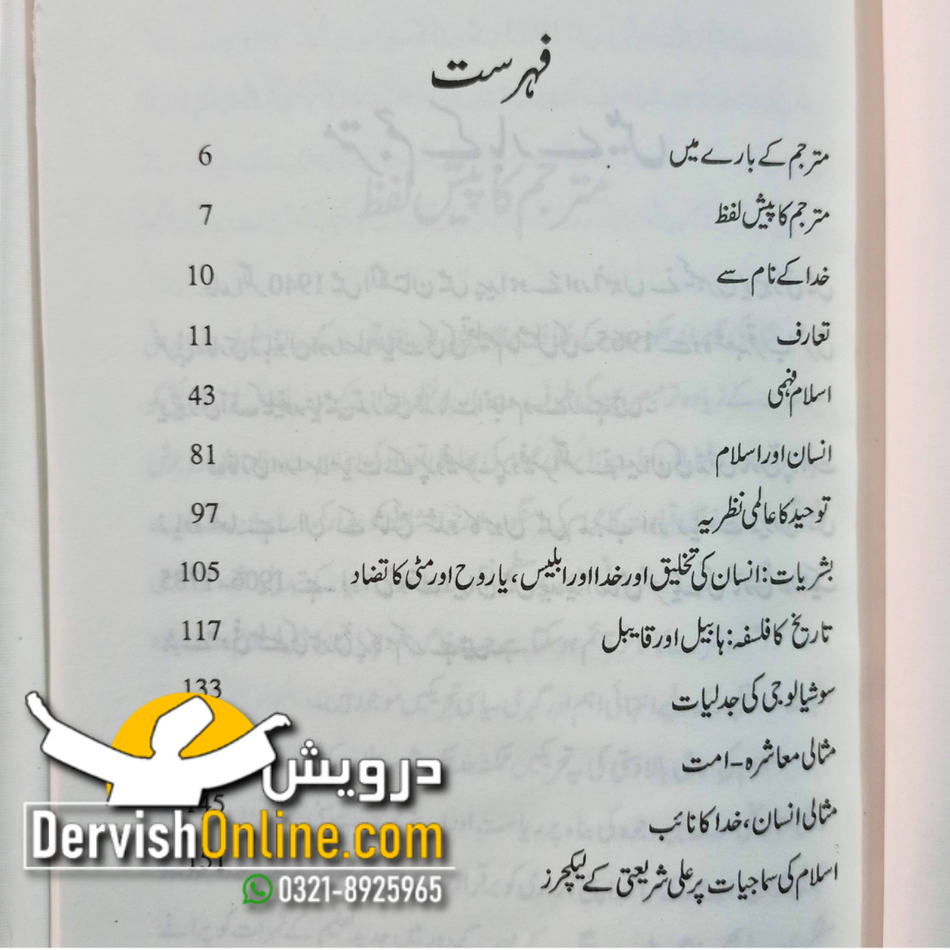 فہرست
مترجم کے بارے میں 6
مترجم کا پیش لفظ 7
خدا کے نام سے 10
تعارف 11
اسلام فہمی 43
انسان اور اسلام 81
توحید کا عالمی نظریہ 97
بشریات: انسان کی تخلیق اور خدا اور ابلیس، یا روح اور مٹی کا تضاد 105
تاریخ کا فلسفہ: ہابیل اور قابیل 117
سوشیالوجی کی جدلیات 133
مثالی معاشرہ - امت
مثالی انسان، خدا کا نائب 145
اسلام کی سماجیات پر علی شریعتی کے لیکچرز 151
درویش
DervishOnline.com
0321-8925965